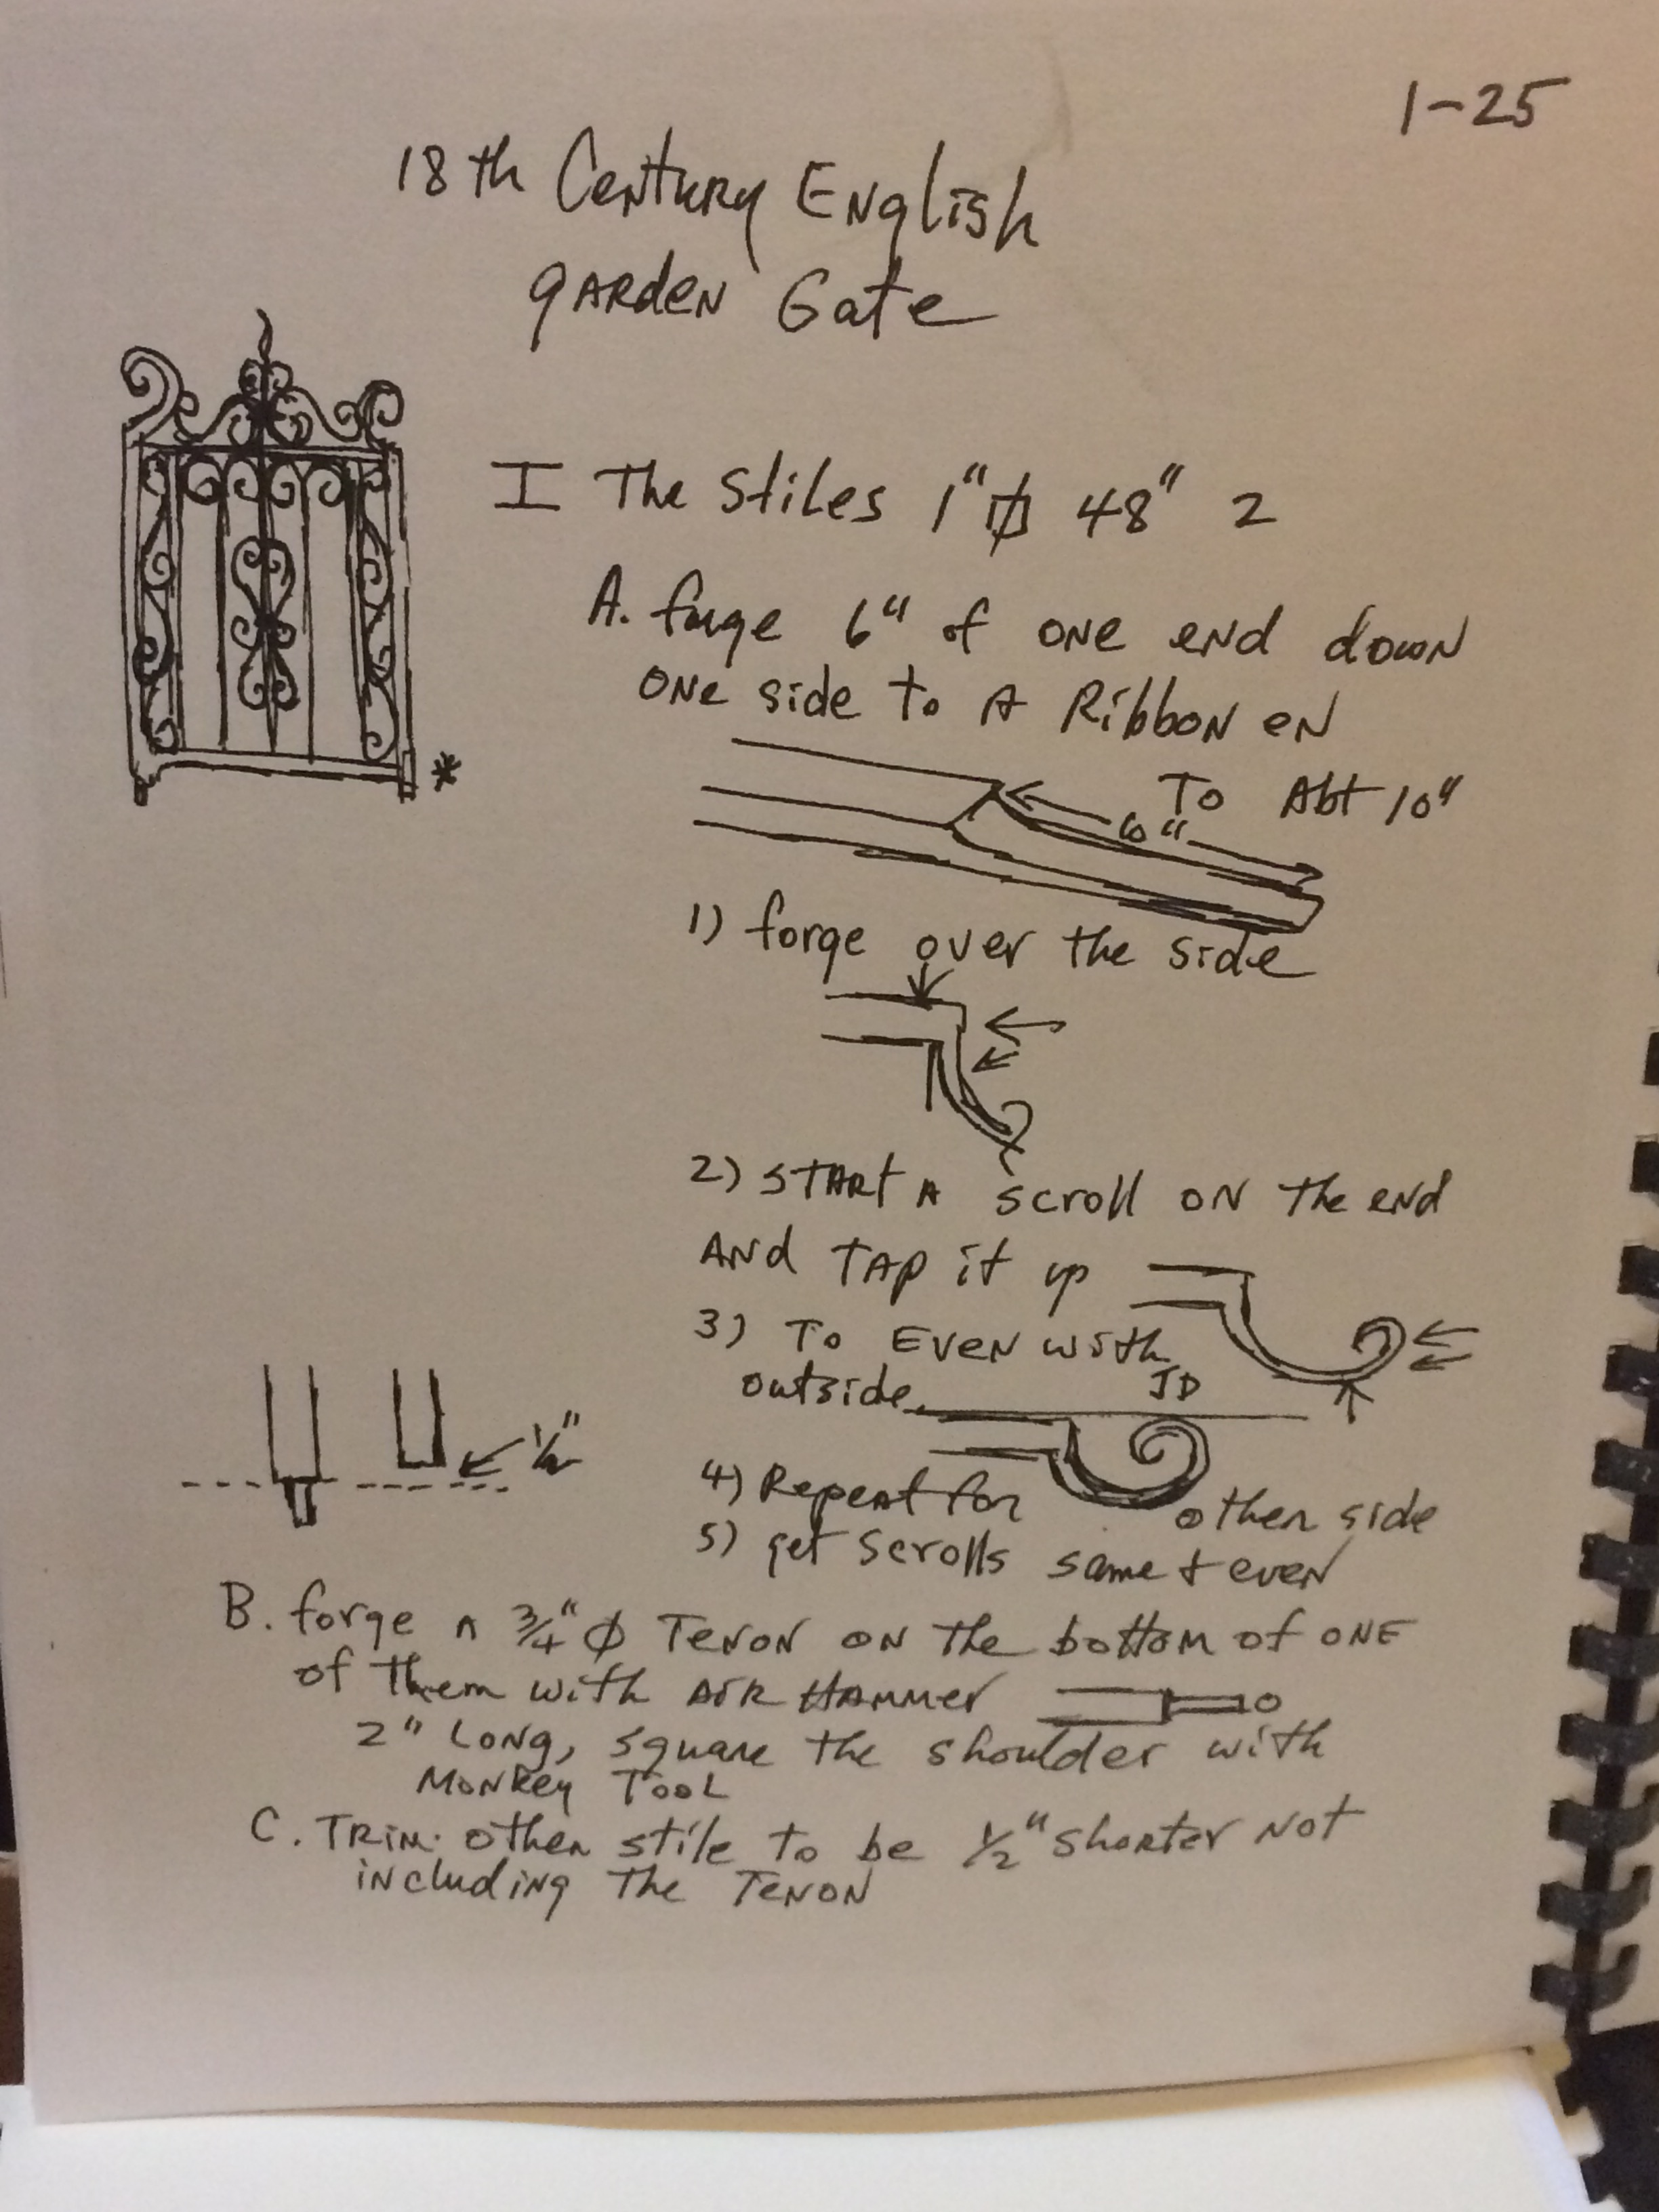 1-25
18th Century English
garden Gate
I The Stiles 1" 48" 2
A. forge 6" of one end down
one side to a Ribbon en
To Abt 10"
6"
1) forge over the side
2) start a scroll on the end
And tap it up
3) To Even with
outside
4) Repeat for other side
5) get scrolls same + even
1/2"
B. forge a 3/4" ϕ Tenon on the bottom of one
of them with Air Hammer
2" Long, square the shoulder with
Monkey Tool
C. Trim other stile to be 1/2" shorter not
including the Tenon